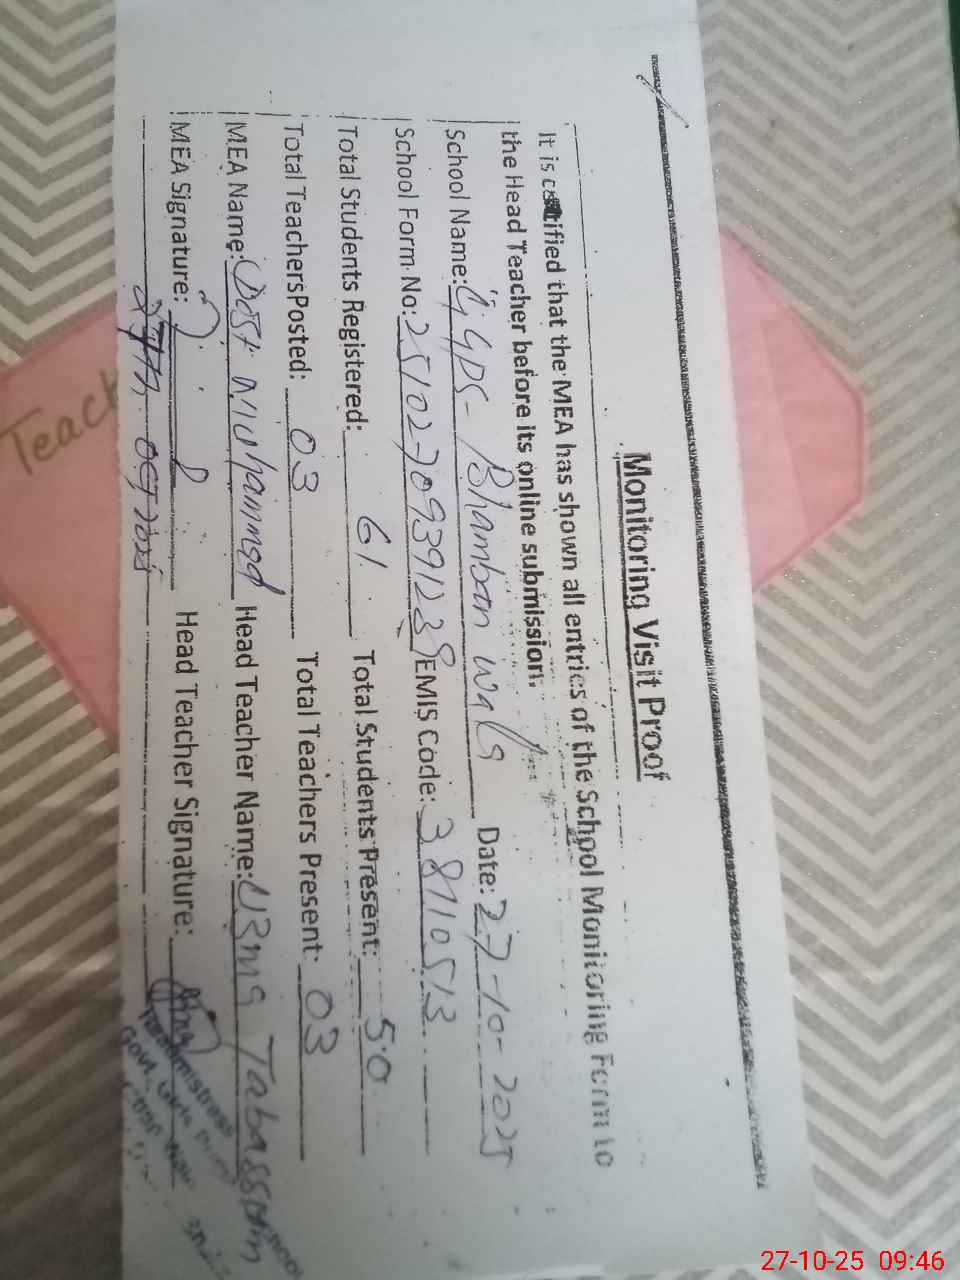 Monitoring Visit Proof
It is certified that the MEA has shown all entries of the School Monitoring Form to
the Head Teacher before its online submission.
School Name: GGPS- Bhamban wala Date: 27-10-2025
School Form No: 25102709391238 EMIS Code: 38110513
Total Students Registered: 61 Total Students Present: 50
Total TeachersPosted: 03 Total Teachers Present: 03
MEA Name: Dost Muhammad Head Teacher Name: Uzma Tabassom
MEA Signature: Head Teacher Signature:
27th OCT 2025
Headmistress
Govt. Girls
Teach
27-10-25 09:46